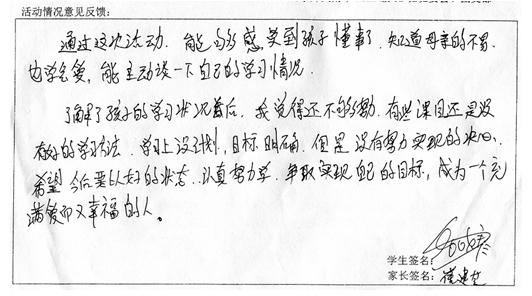 活动情况意见反馈:
通过这次活动,能够感受到孩子懂事了,知道母亲的不易,
也学会爱,能主动谈一下自己的学习情况。
了解了孩子的学习状况后,我觉得还不够努力,有些课目还是没
有好的学习方法,学习上没计划,目标明确,但是没有努力实现的决心,
希望今后要以好的状态,认真努力学,争取实现自己的目标,成为一个充
满爱而又幸福的人。
学生签名:
家长签名: